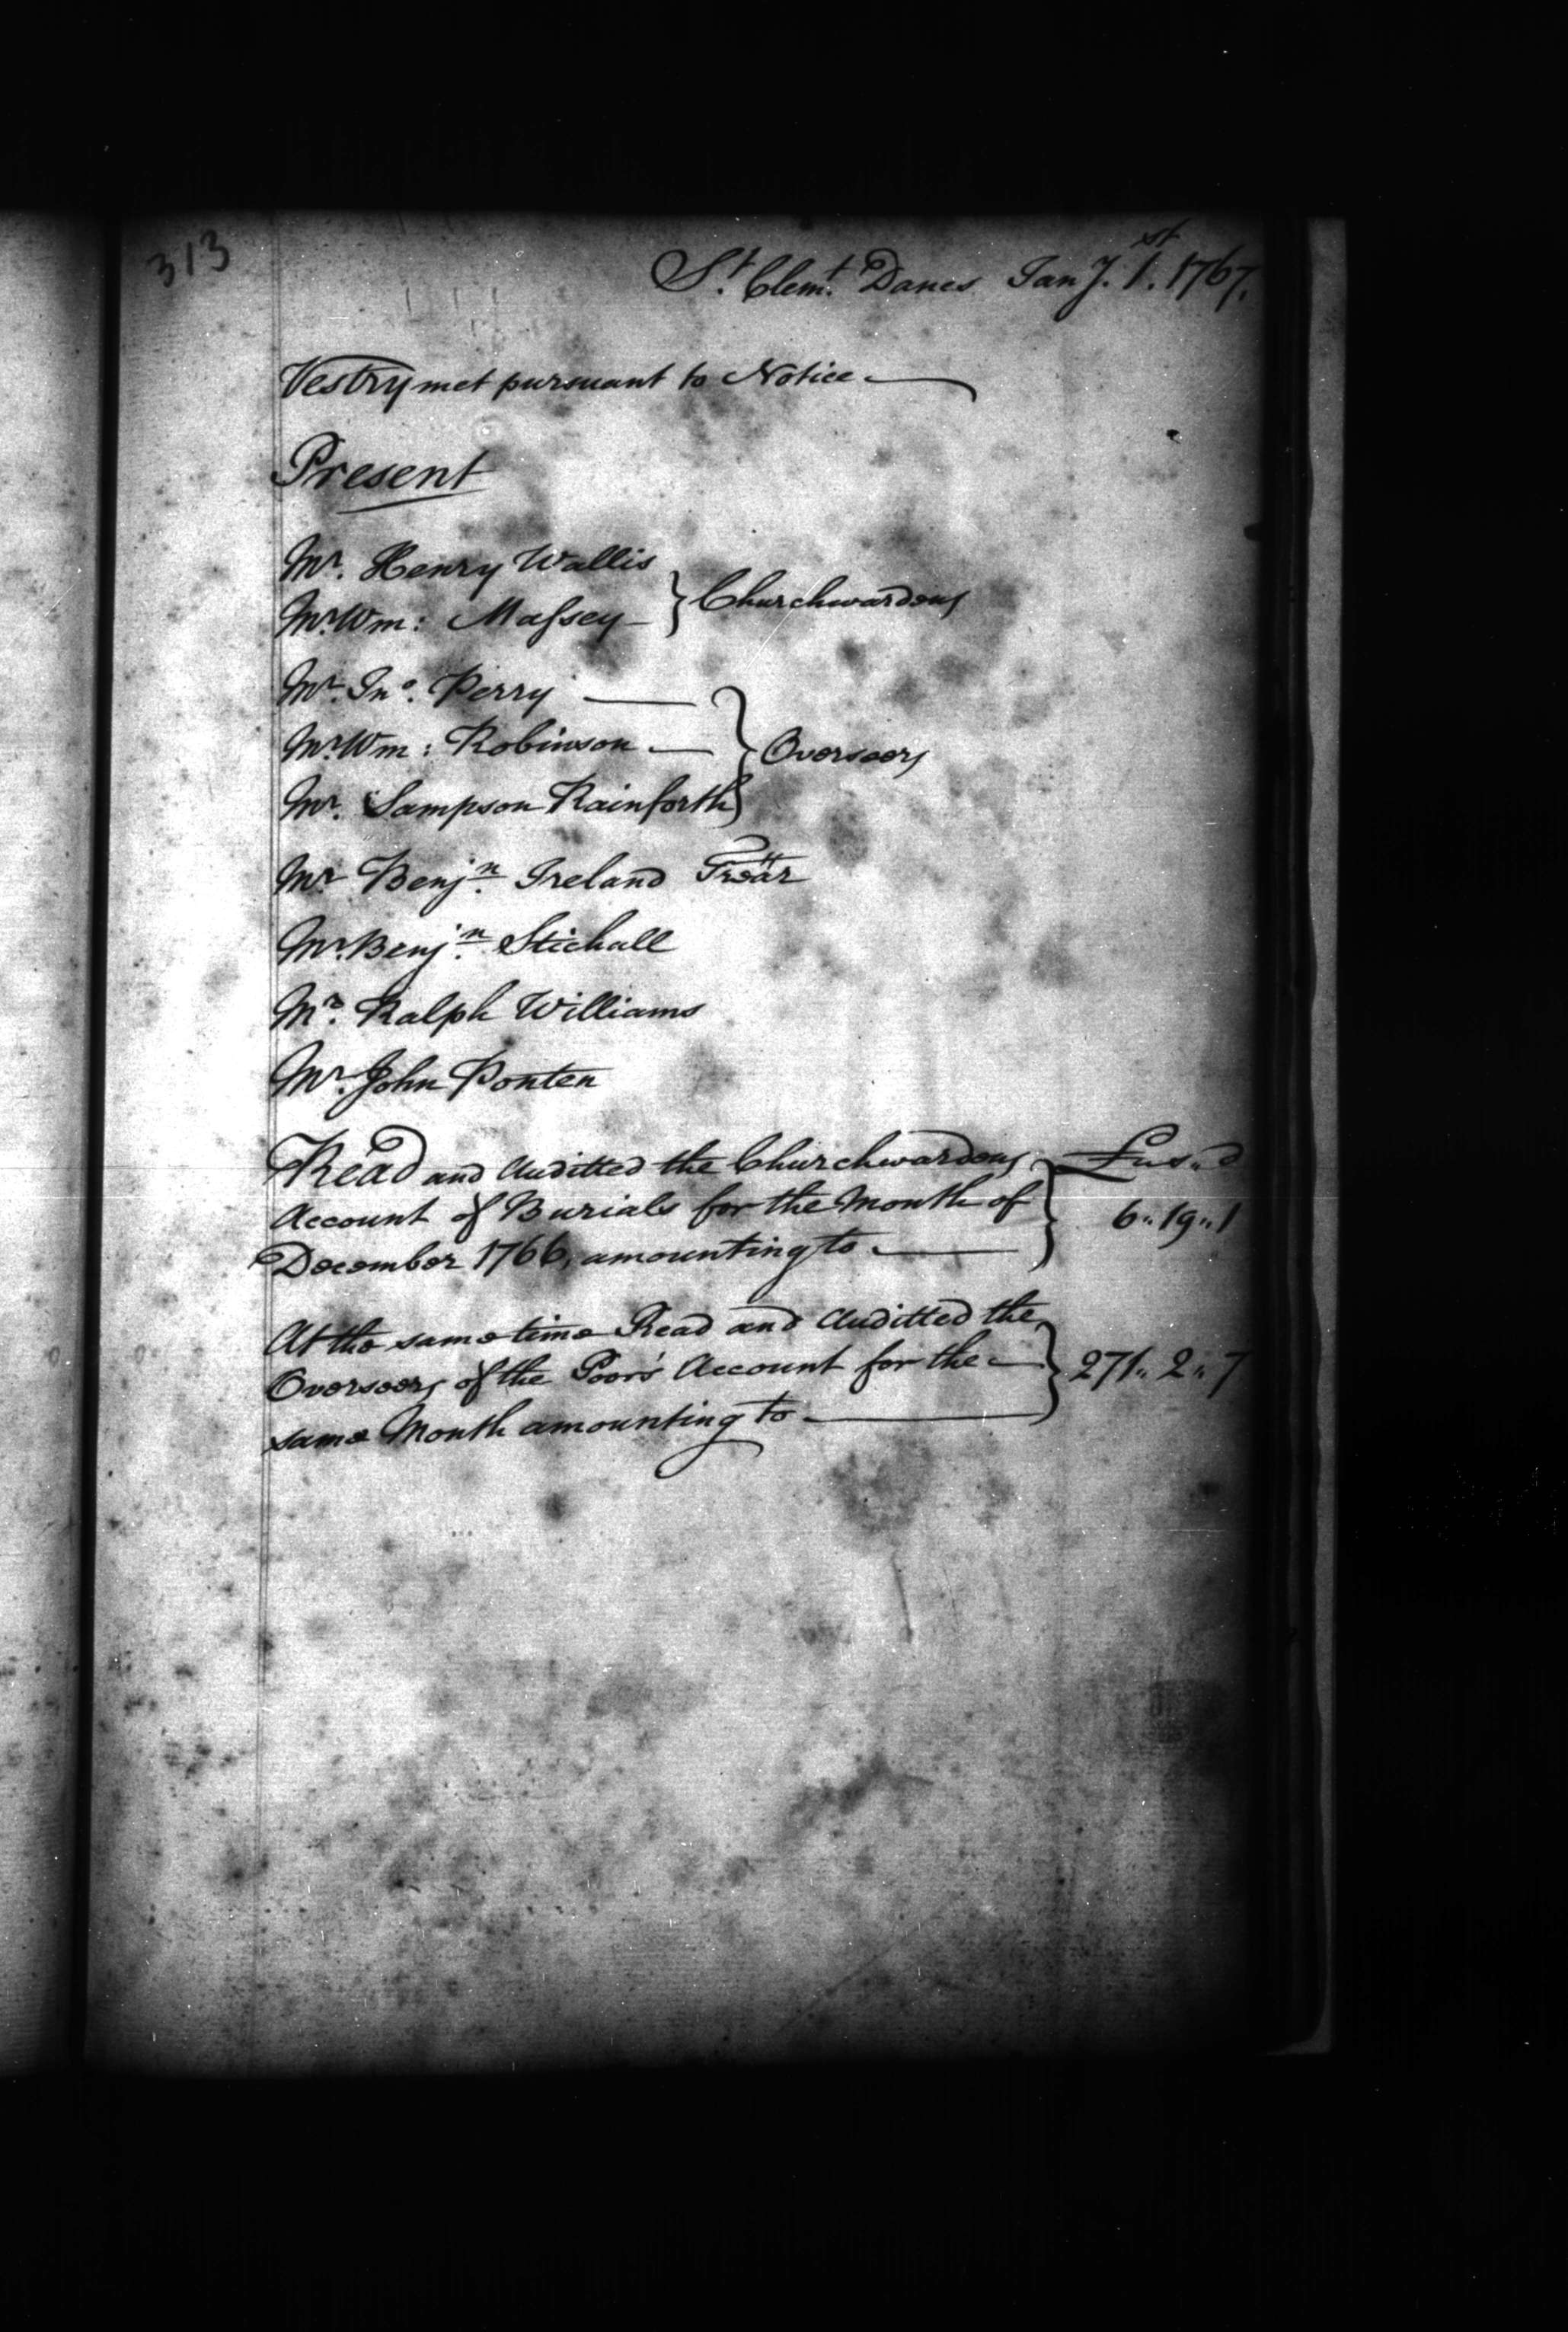 313
St. Clemt. Danes Jany. 1st. 1767.
Vestry met pursuant to Notice
Present
Mr. Henry Wallis
Mr. Wm: Massey } Churchwardens
Mr. Jno. Perry
Mr. Wm: Robinson } Overseers
Mr. Sampson Rainforth
Mr Benjn. Ireland Trear
Mr. Benjn. Stichall
Mr. Ralph Williams
Mr. John Ponten
Read and Auditted the Churchwardens £ " s " d
Account of Burials for the Month of } 6 " 19 " 1
December 1766, amounting to
At the same time Read and Auditted the
Overseers of the Poor's Account for the } 271 " 2 " 7
same Month amounting to